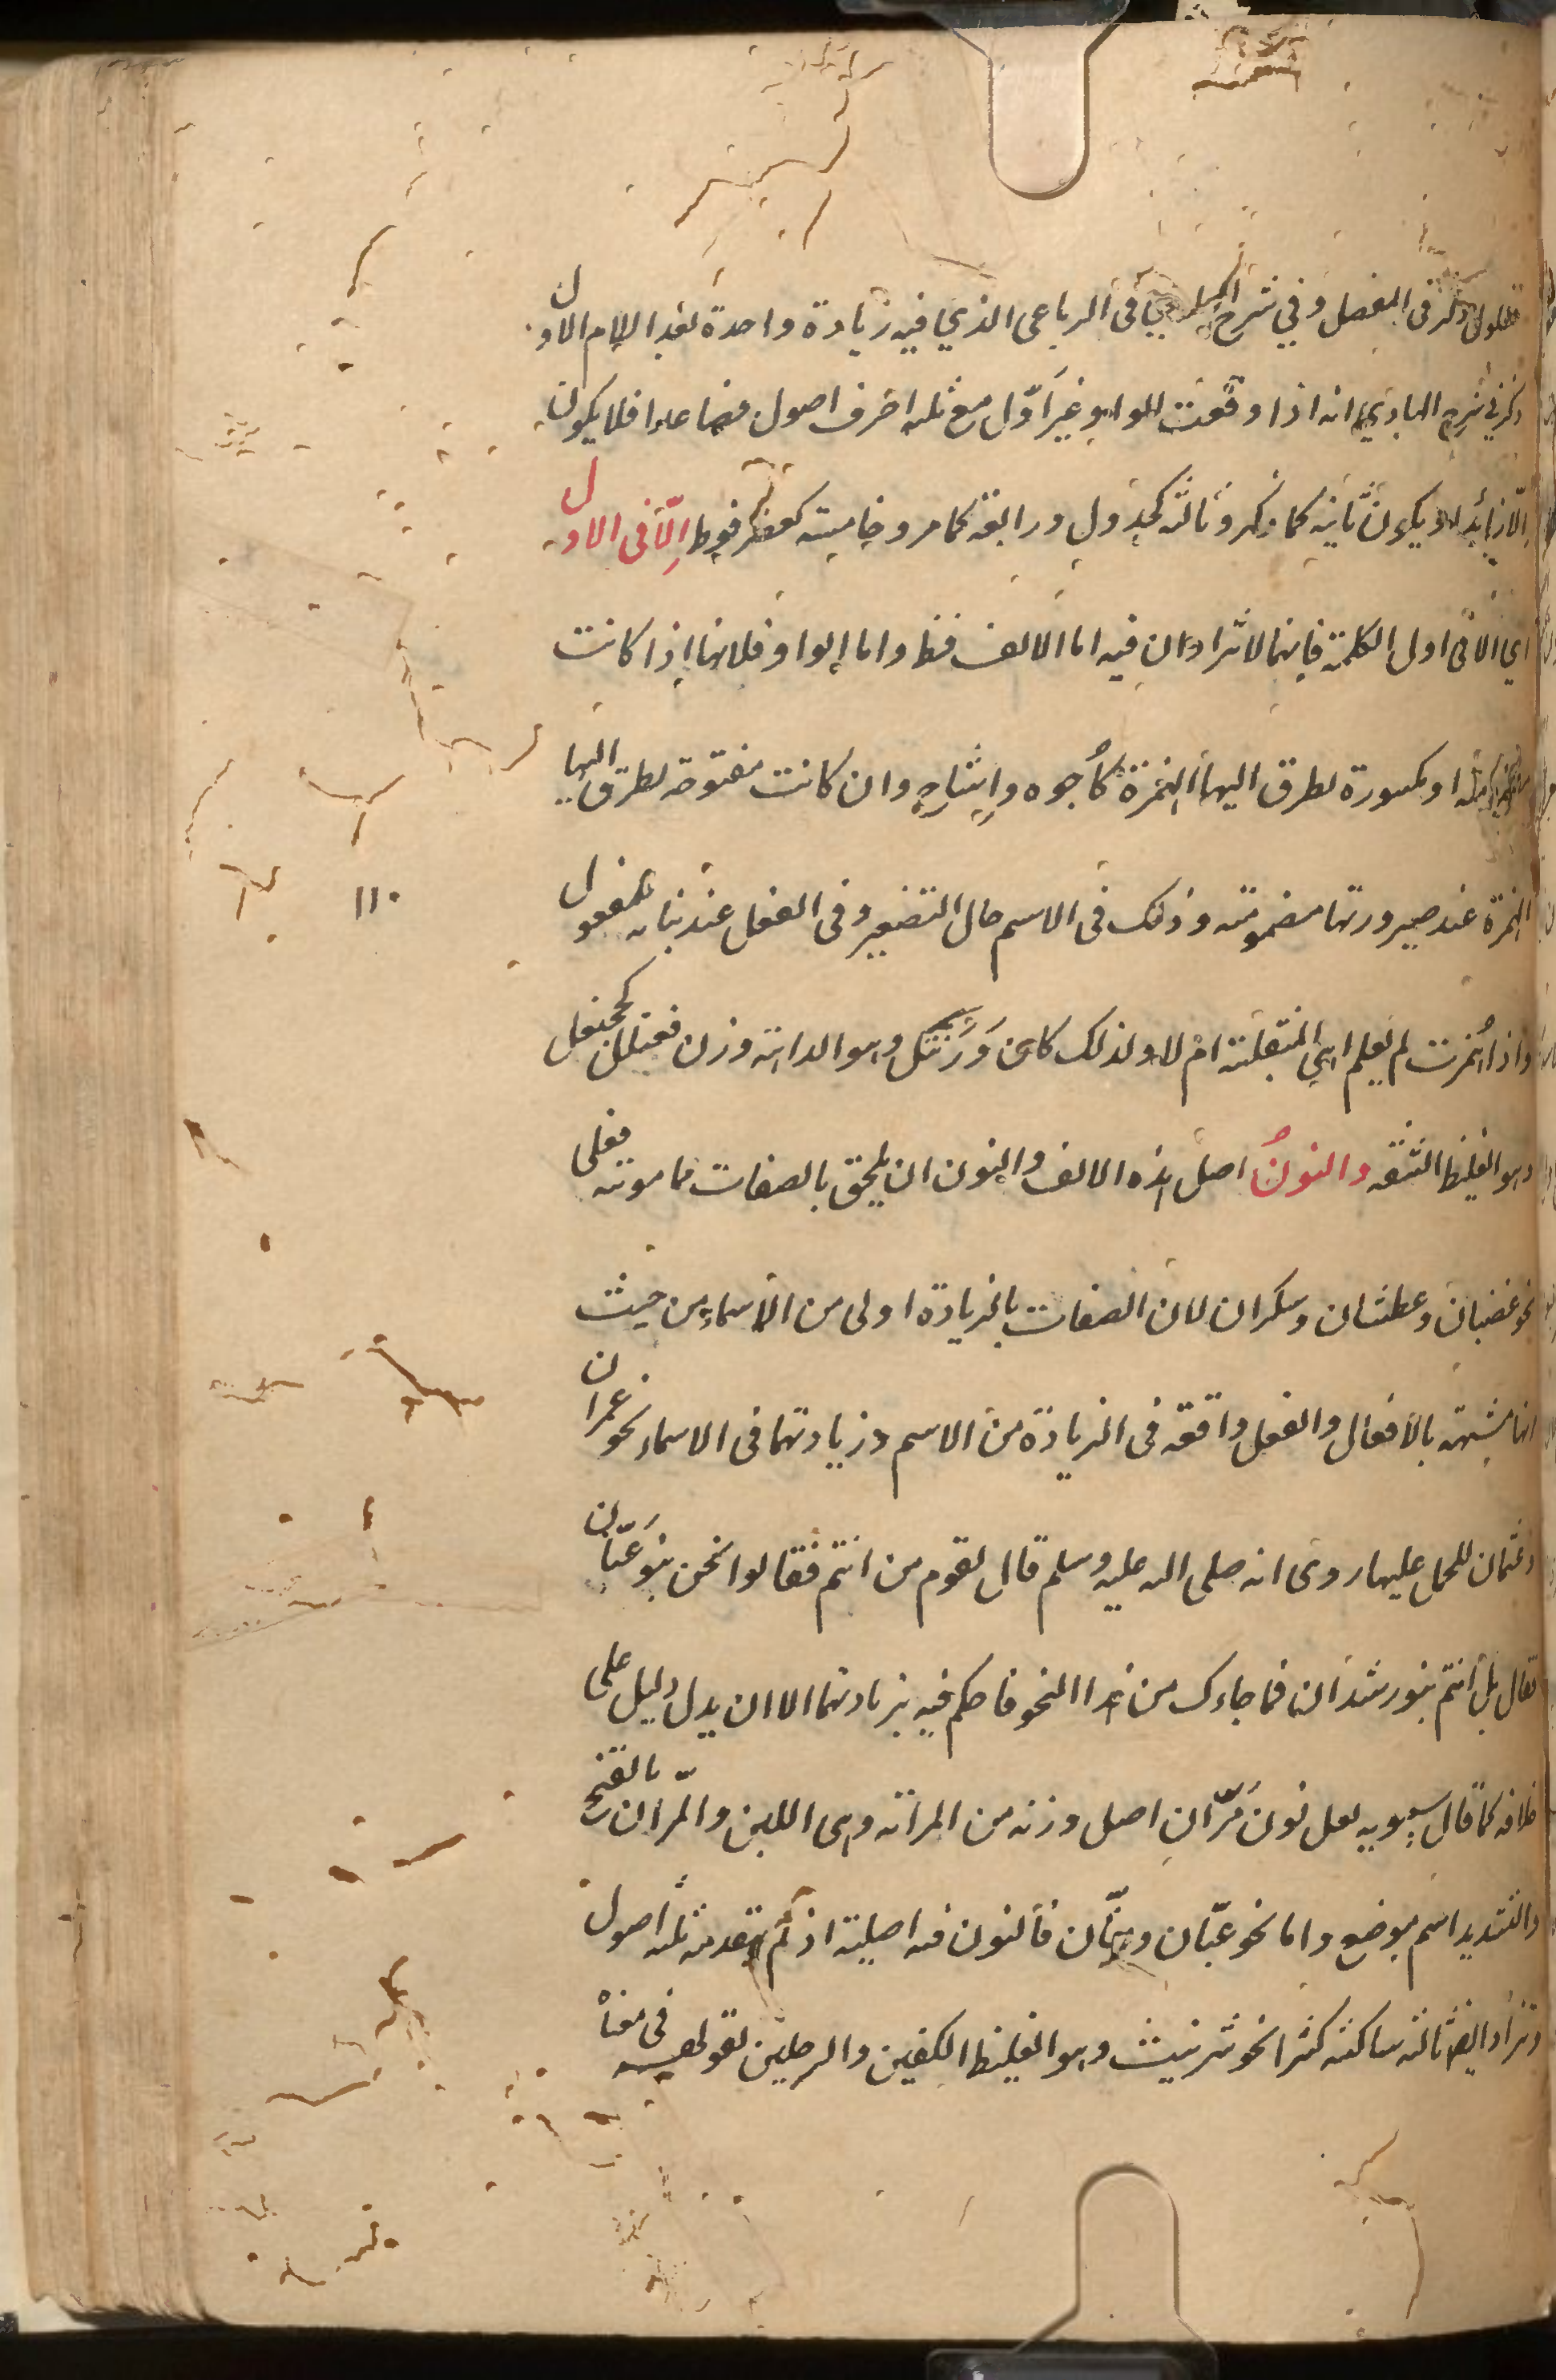 ذكر في المفصل وفي شرح في الرباعي الذي فيه زيادة واحدة بعد اللام الاول
ذكر في شرح الهادي انه اذا وقعت الواو غير اوّل مع ثلثه احرف اصول فصاعدا فلا يكون
الّا زائدا ويكون ثانيه كما ذكر وثالثه كجدول ورابعه كما مر وخامسه كعضرفوط الّا في الاول
اي الا في اول الكلمة فانهما لا تزادان فيه اما الالف فظ واما الواو فلانها اذا كانت
او مكسورة تطرق اليها الهمزة كاُجوه واِشاح وان كانت مفتوحة تطرق اليها
الهمزة عند صيرورتها مضمومة وذلك في الاسم حال التصغير وفي الفعل عند بنائه للمفعول
واذا اُهمزت لم يعلم اهي المنقلبة ام لا ولذلك كان وَرَنتَل وهو الداهية وزن فعنلل كجحنفل
وهو الغليظ الشفه والنونُ اصل هذه الالف والنون ان يلحق بالصفات مما مونثه فعلى
نحو غضبان وعطشان وسكران لان الصفات بالزيادة اولى من الاسماء من حيث
انها مشبهة بالافعال والفعل واقعه في الزيادة من الاسم وزيادتهما في الاسماء نحو عمران
وعثمان للحمل عليها روى انه صلى الله عليه وسلم قال لقوم من انتم فقالوا نحن بنو غَيّان
فقال بل انتم بنو رشدان فما جاءك من هذا النحو فاحكم فيه بزيادتهما الا ان يدل دليل على
خلافه كما قال سيبويه لعل نون مُرّان اصل وزنه من المرانه وهي اللين والمرّان بالفتح
والتشديد اسم موضع واما نحو عنان فالنون فيه اصلية اذ لم يتقدمه ثلثه اصول
وتزاد ايضا ثالثه ساكنه كثيرا نحو شرنبث وهو الغليظ الكفين والرجلين لقولهم في معناه
١١٠